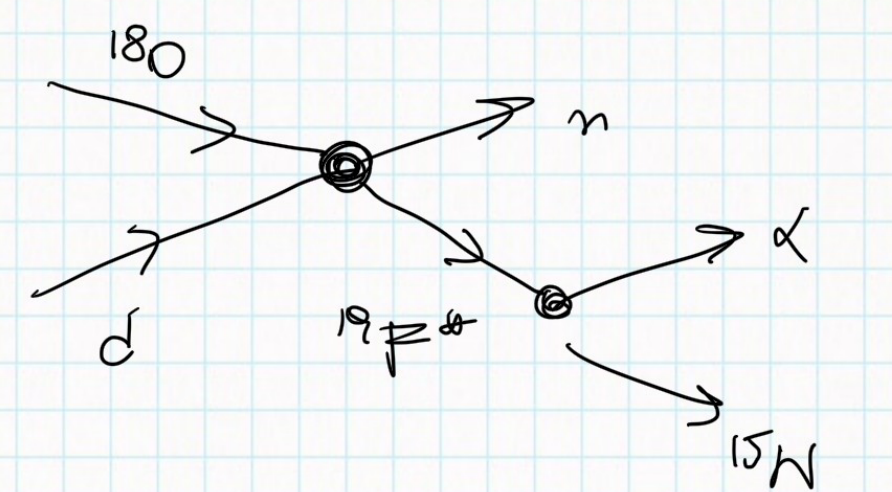 ¹⁸O
n
α
d
¹⁹F*
¹⁵N